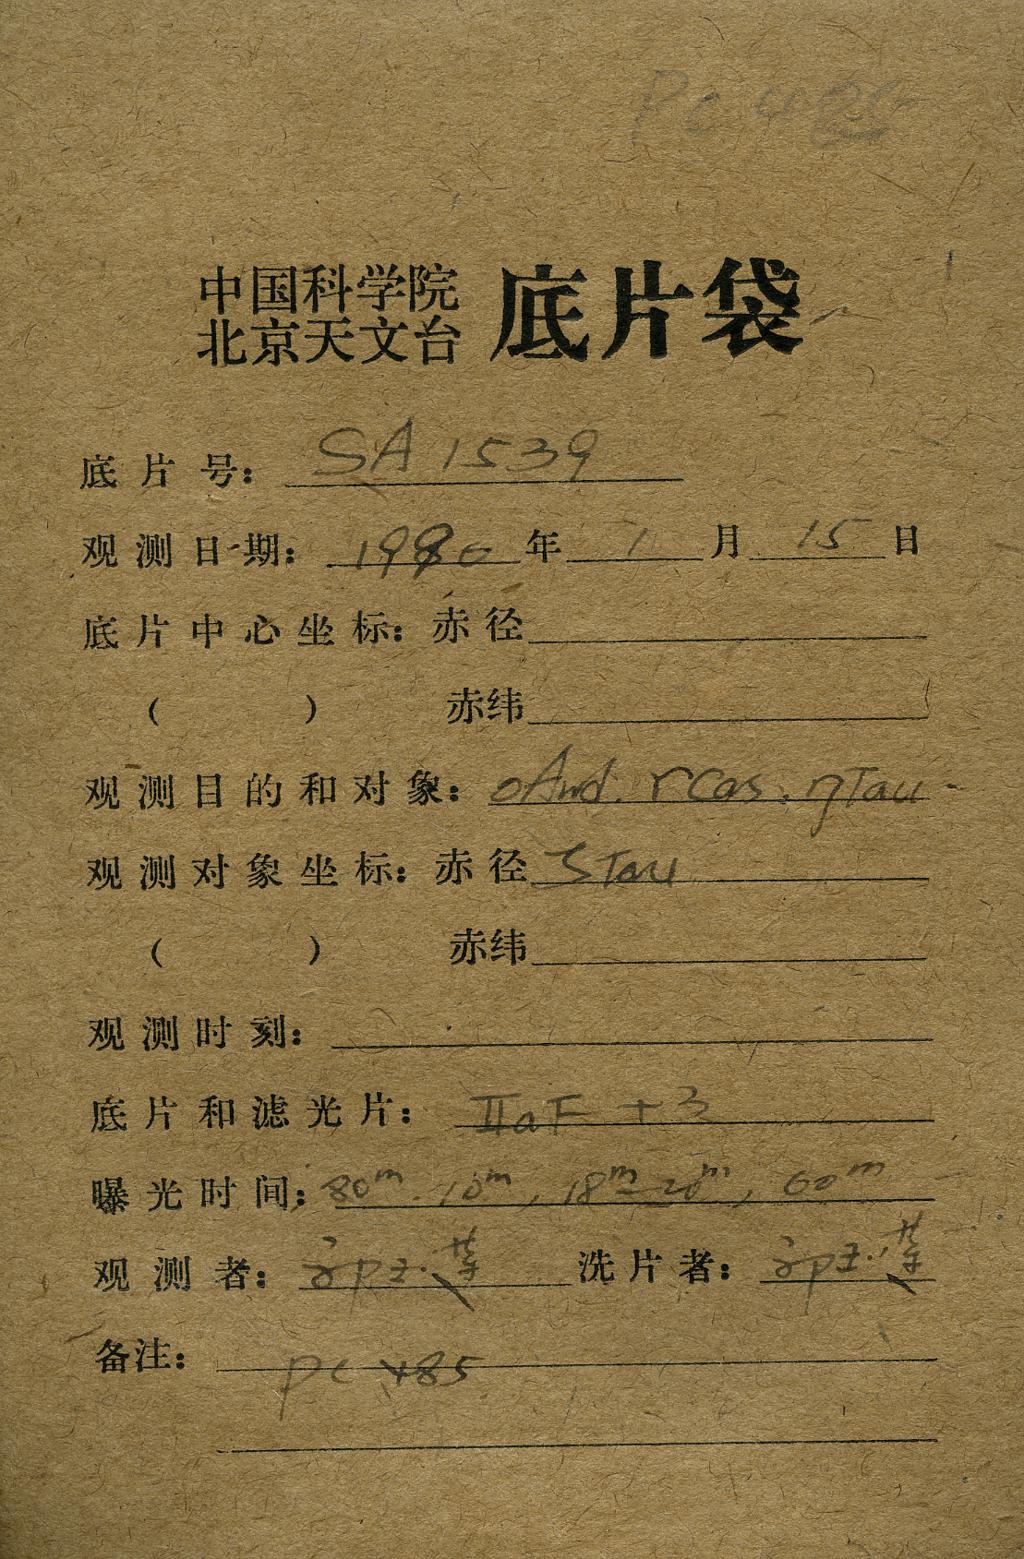 PC 485
中国科学院
北京天文台 底片袋
底片号: SA 1539
观测日期: 1980 年 1 月 15 日
底片中心坐标: 赤径
( ) 赤纬
观测目的和对象: oAnd. rCas. ηTau
观测对象坐标: 赤径 ζTau
( ) 赤纬
观测时刻:
底片和滤光片: IIaF +3
曝光时间: 80m. 10m, 18m 20m, 60m
观测者: 洗片者:
备注: pc 485